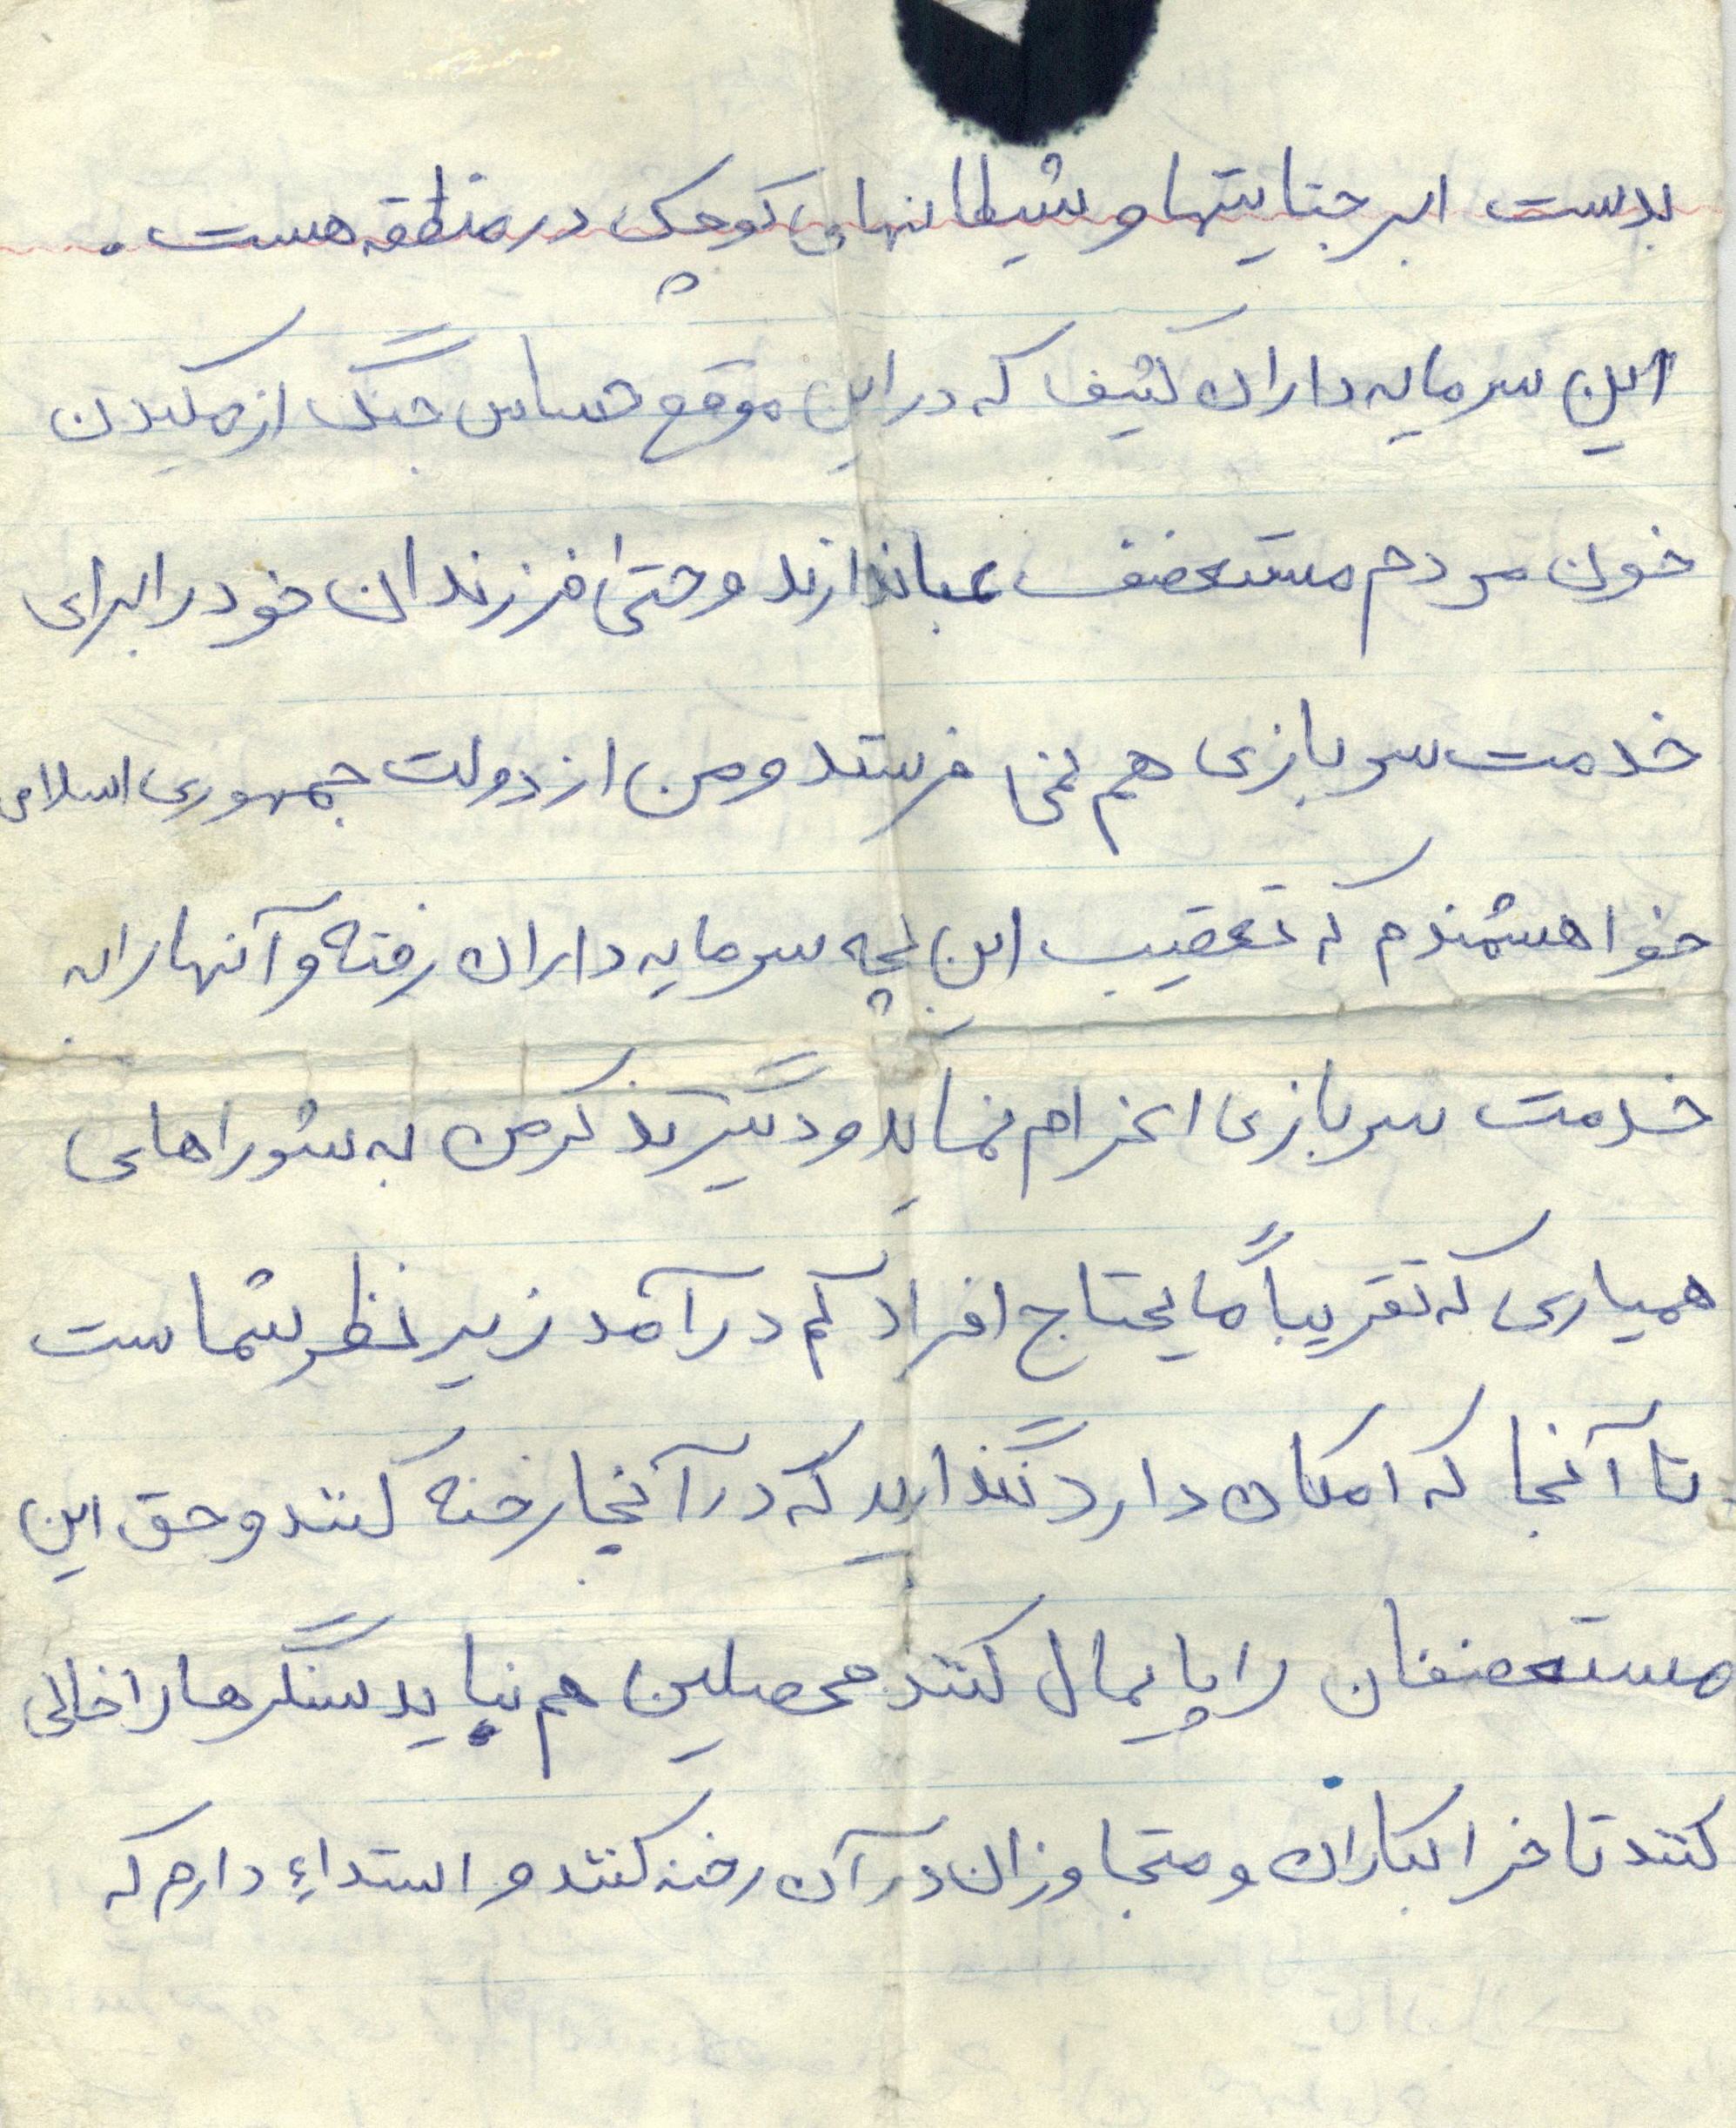 بدست ابر جنایتها و شیطانهای کوچک در منطقه هست.
این سرمایه داران کثیف که در این موقع حساس جنگ از مکیدن
خون مردم مستعضف وحتی فرزندان خود را برای
خدمت سربازی هم نمی فرستند و من از دولت جمهوری اسلامی
خواهشمندم که تعقیب این بچه سرمایه داران رفته و آنها را به
خدمت سربازی اعزام نماید و دیگر تذکر من به شوراهای
همیاری که تقریباً مایحتاج افراد کم درآمد زیر نظر شماست
تا آنجا که امکان دارد نگذارید که در آنجا رخنه کنند و حق این
مستعضفان را پایمال کنند محصلین هم نباید سنگرها را خالی
کنند تا خرابکاران و متجاوزان در آن رخنه کنند و استداء دارم که